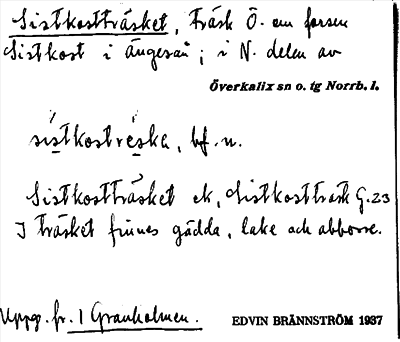 Sistkostträsket, träsk Ö. om forsen
Sistkost i Ängesån; i N. delen av
Överkalix sn o. tg Norrb. l.
sistkostrèska, bf. n.
Sistkostträsket ek, Sistkostträsk G.23
I träsket finnes gädda, lake och abborre.
Uppg. fr. 1 Granholmen. EDVIN BRÄNNSTRÖM 1937